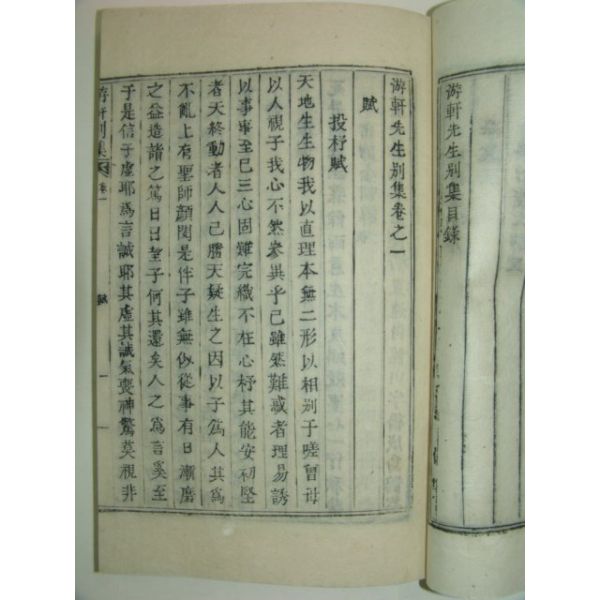 游軒先生別集目錄
游軒先生別集卷之一
賦
投杼賦
天地生生物我以直理本無二形以相別于嗟曾母
以人視子我心不然參異乎已雖然難惑者理易誘
以事寧至已三心固難完織不在心杼其能安初堅
者天終動者人人已膺天疑生之因以子爲人其爲
不亂上有聖師顔閔是伴子雖無似從事有日漸磨
之益造諸之篤日日望子何其還矣人之爲言奚至
于是信子虛耶爲言誠耶其虛其誠氣喪神驚莫視非
游軒別集
卷一
賦
一